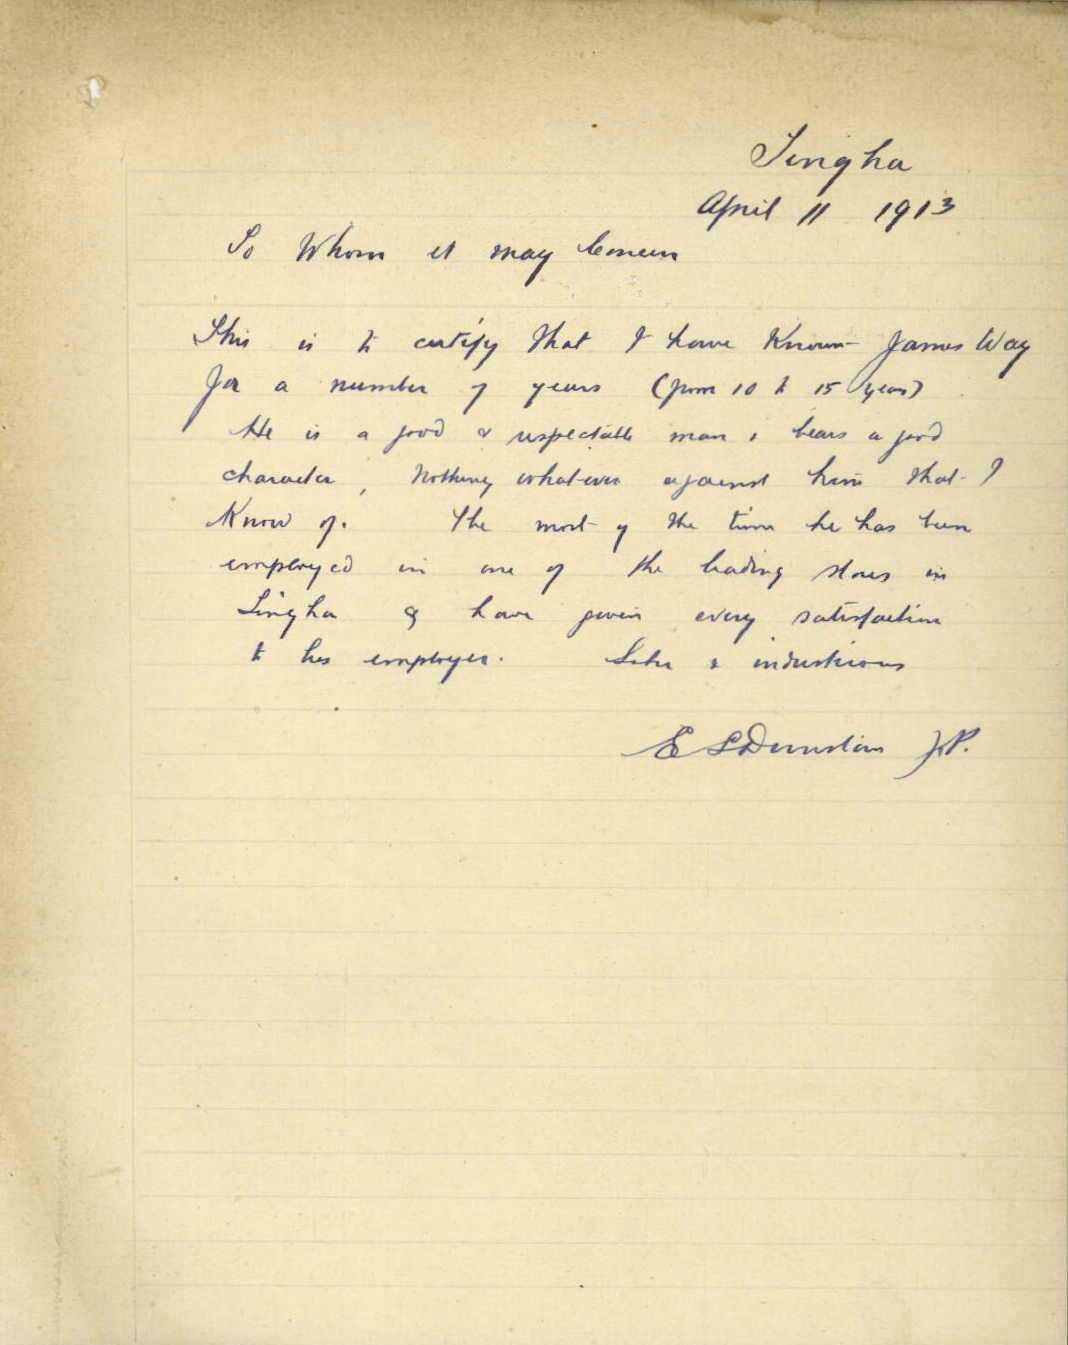 Tingha
April 11 1913
To Whom it may Concern
This is to certify that I have Known James Way
for a number of years (from 10 to 15 years)
He is a good & respectable man & bears a good
character, Nothing whatever against him that I
Know of. The most of the time he has been
employed in one of the leading stores in
Tingha & have given every satisfaction
to his employer. Sober & industrious
E S Dunstan J.P.